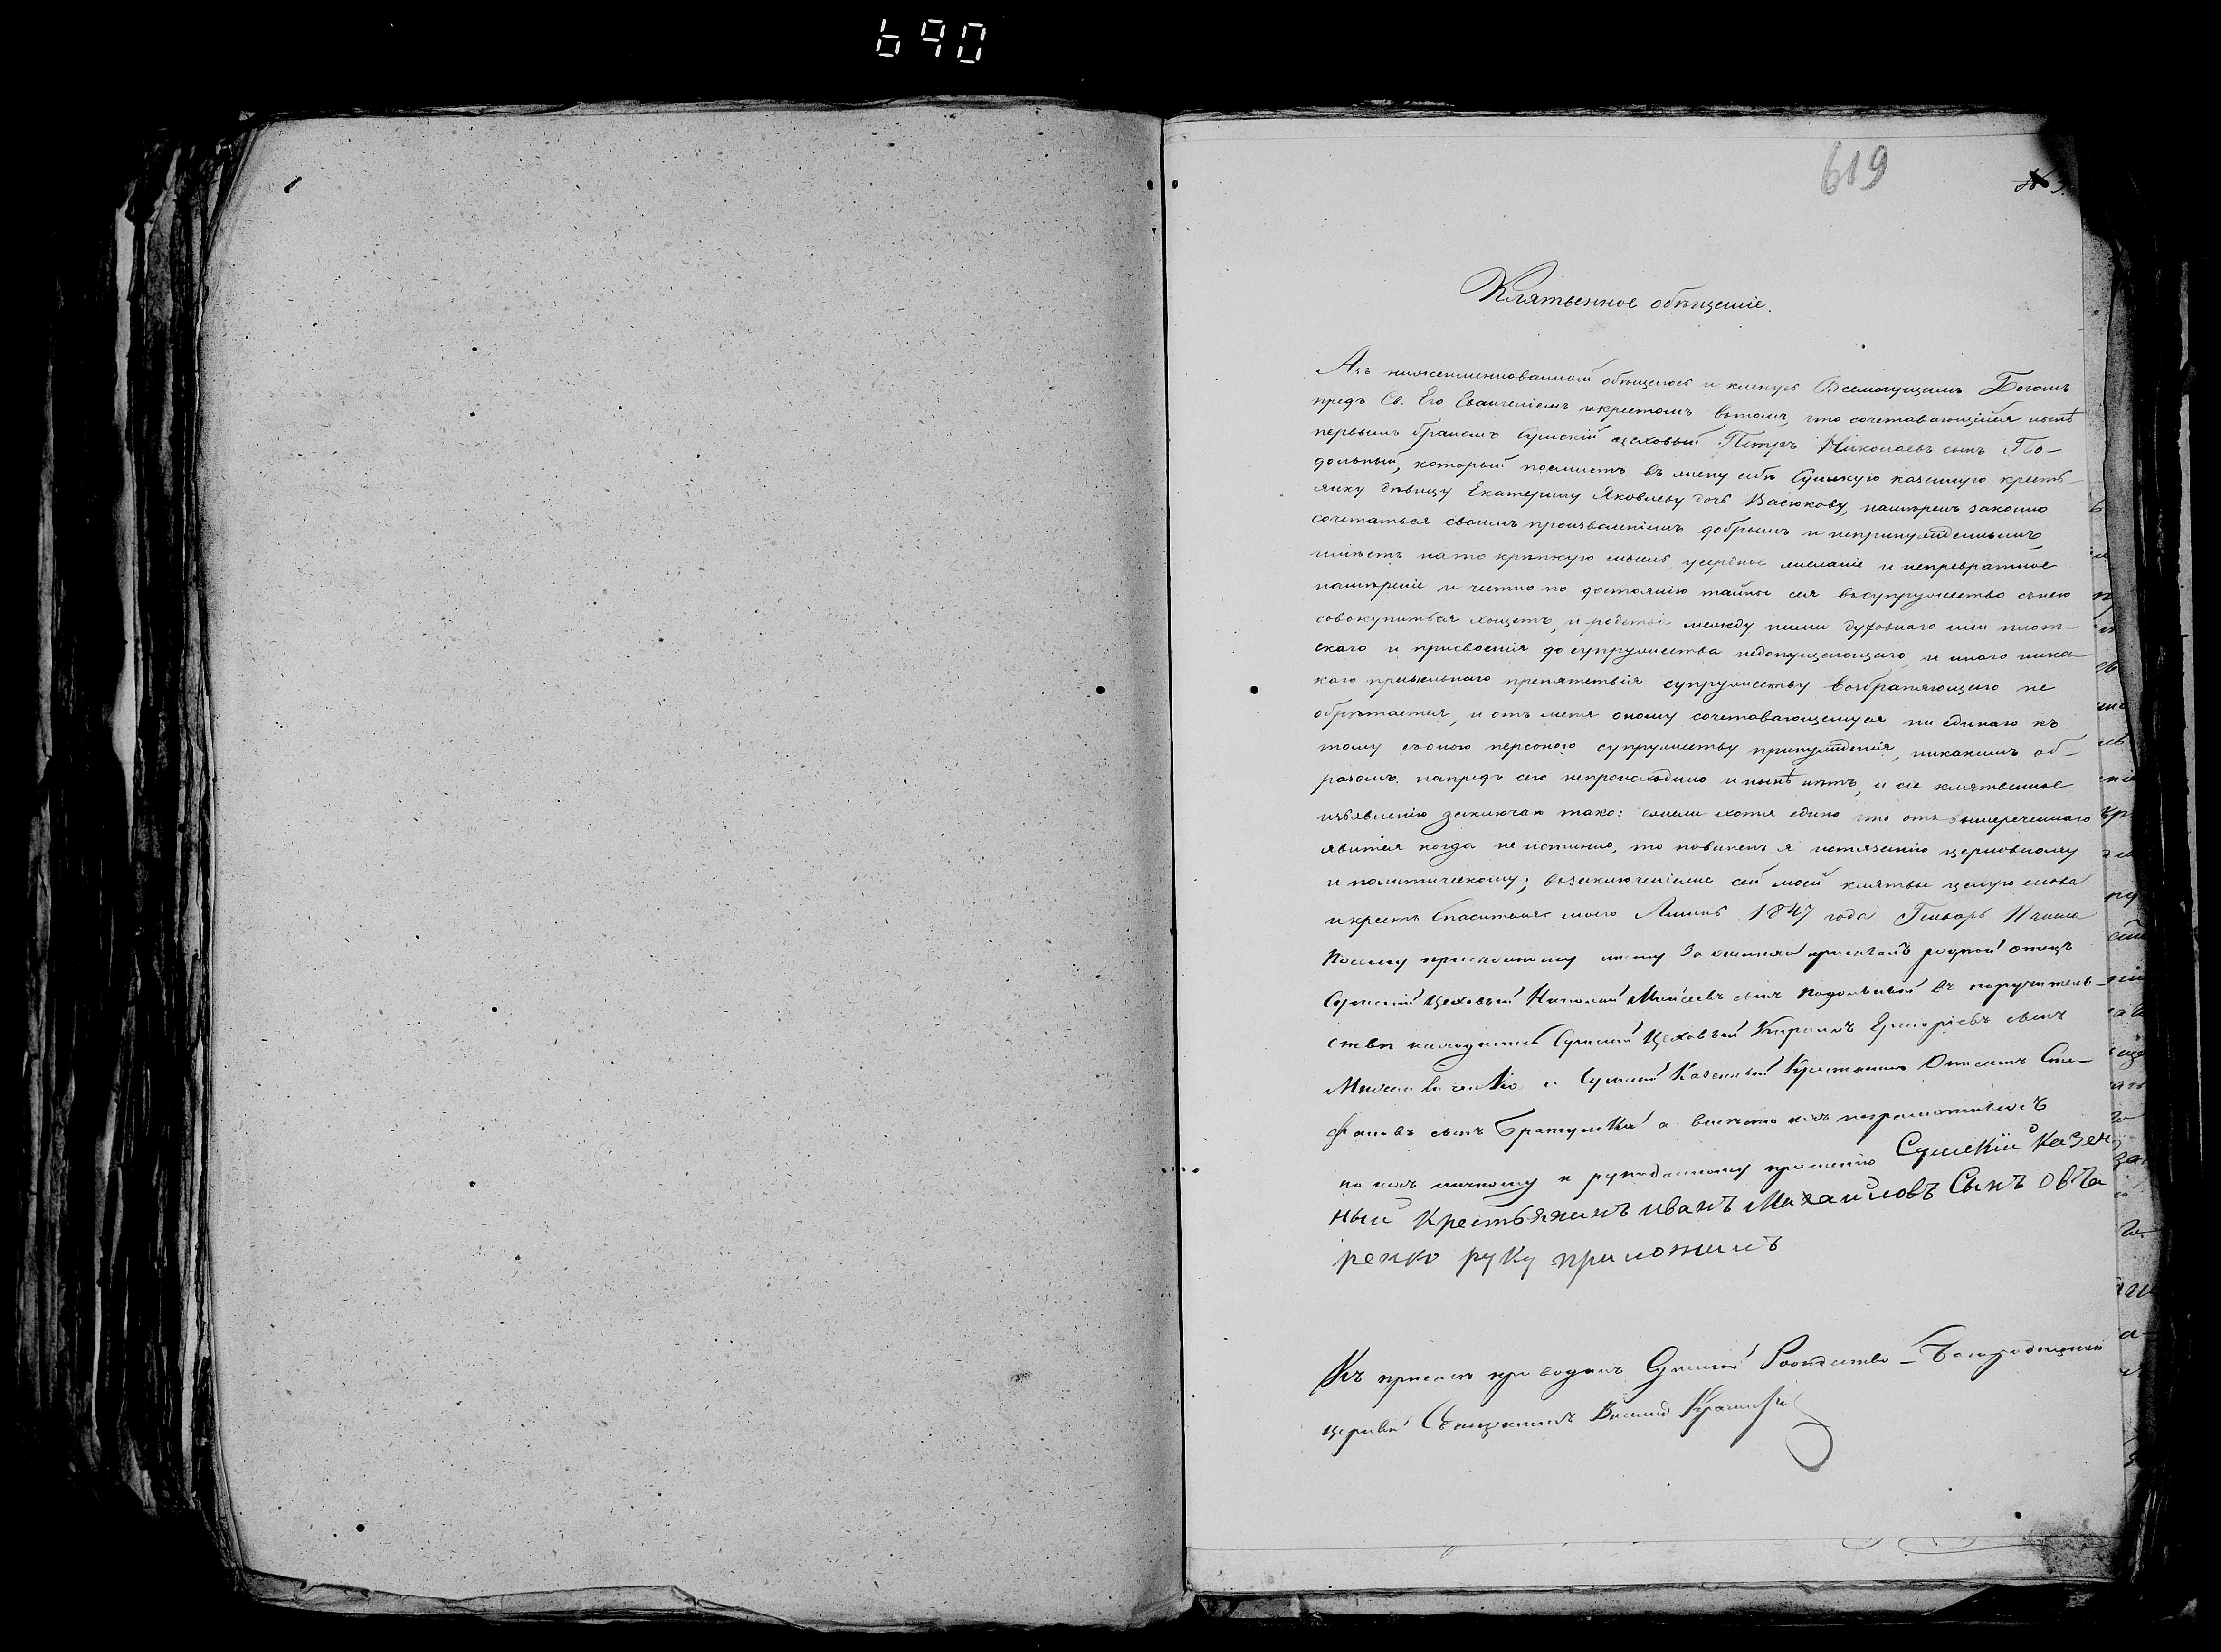 690
619
№ 3.
Клятвенное обѣщаніе.
Азъ нижеименнованный обѣщаюсь и кленусь Всемогущимъ Богомъ
предъ Св. Его Евангеліемъ икрестомъ вътомъ, что сочетавающійся нынѣ
первымъ бракомъ Сумскій цеховый Петръ Николаевъ сынъ По-
дольный, который поемлетъ въ жену себѣ Сумскую казенную кресть-
янку дѣвицу Екатерину Яковлеву дочь Васюкову, намѣренъ законно
сочетаться своимъ произволеніемъ добрымъ и непринужденнымъ,
имѣетъ на то крѣпкую мысль, усердное желаніе и непревратное
намѣреніе и честно по достоянію тайны сея въсупружество сънею
совокупиться хощетъ, и родства между ними духовнаго или плот-
скаго и присвоенія до супружества недопущающаго, и инаго ника-
кого правильнаго препятствія супружеству возбраняющаго не
обрѣтается, и отъ меня оному сочетавающемуся ни единаго къ
тому съоною персоною супружеству принужденія, никакимъ об-
разомъ напредъ сего непроисходило и нынѣ нѣтъ, и сіе клятвенное
изъявленію заключаю тако: ежели хотя едино что отъ вышереченнаго
явится когда не истинно, то повиненъ я истязанію церковному
и политическому; възаключеніеже сей моей клятвы целую слова
икрестъ Спасителя моего Аминь 1847 года Генварь 11 числа
По сему присяжному листу За жениха присягалъ родной отецъ
Сумскій Цеховый Николай Моисеевъ сынъ Подольный въ поручитель-
ствѣ находились Сумскій Цеховый Кирилъ Григорьевъ сынъ
и Сумской Казенный Крестьянинъ Сте-
фановъ сынъ Братушка а вмѣсто ихъ неграмотныхъ
по ихъ личному и рукоданному прошенію Сумскій Казен
ный Крестьянинъ иванъ Михайловъ Сынъ овча
ренко руку приложилъ
Къ присягѣ приводилъ Сумской Рождество-Богородицкой
церкви Священникъ Василій